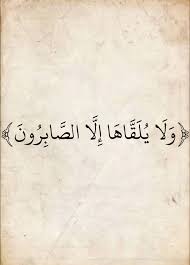 ﴿وَلَا يُلَقَّاهَا إِلَّا الصَّابِرُونَ﴾